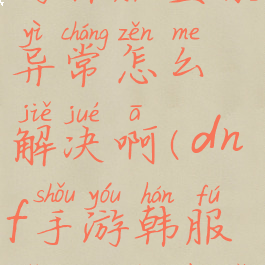 yì cháng zěn me
异常怎么
jiě jué ā
解决啊(dn
shǒu yóu hán fú
f手游韩服